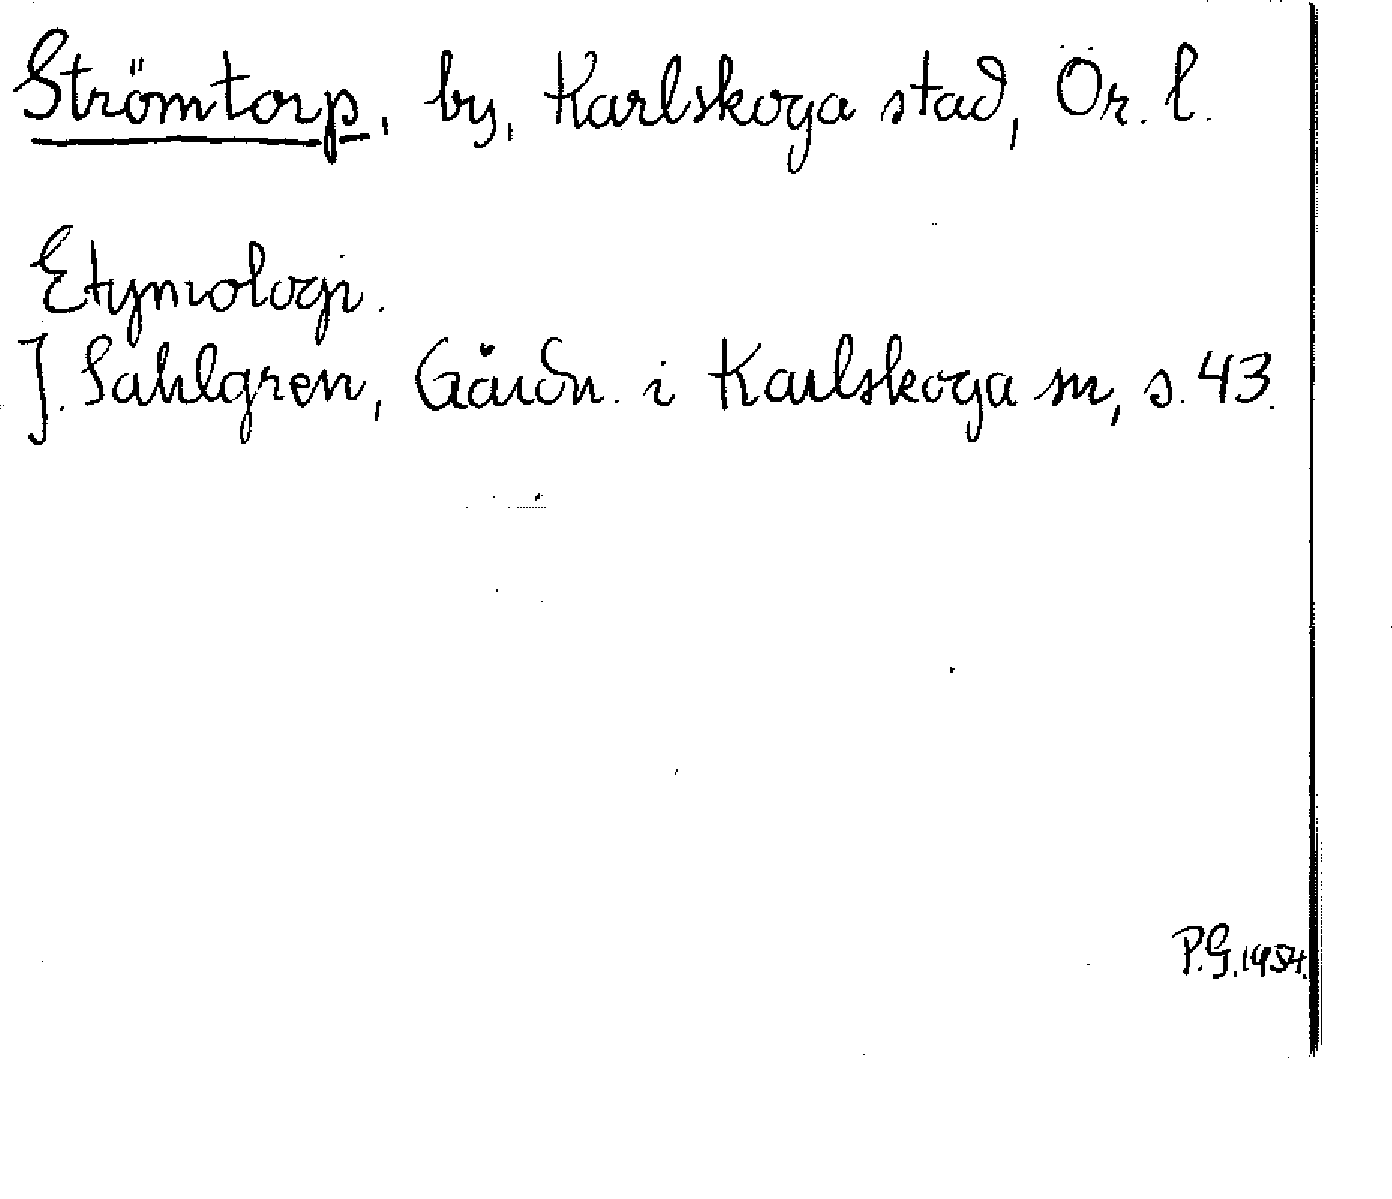 Strömtorp, by, Karlskoga stad, Ör. l.
Etymologi.
J. Sahlgren, Gårdn. i Karlskoga sn, s. 43.
P.G. 1954.